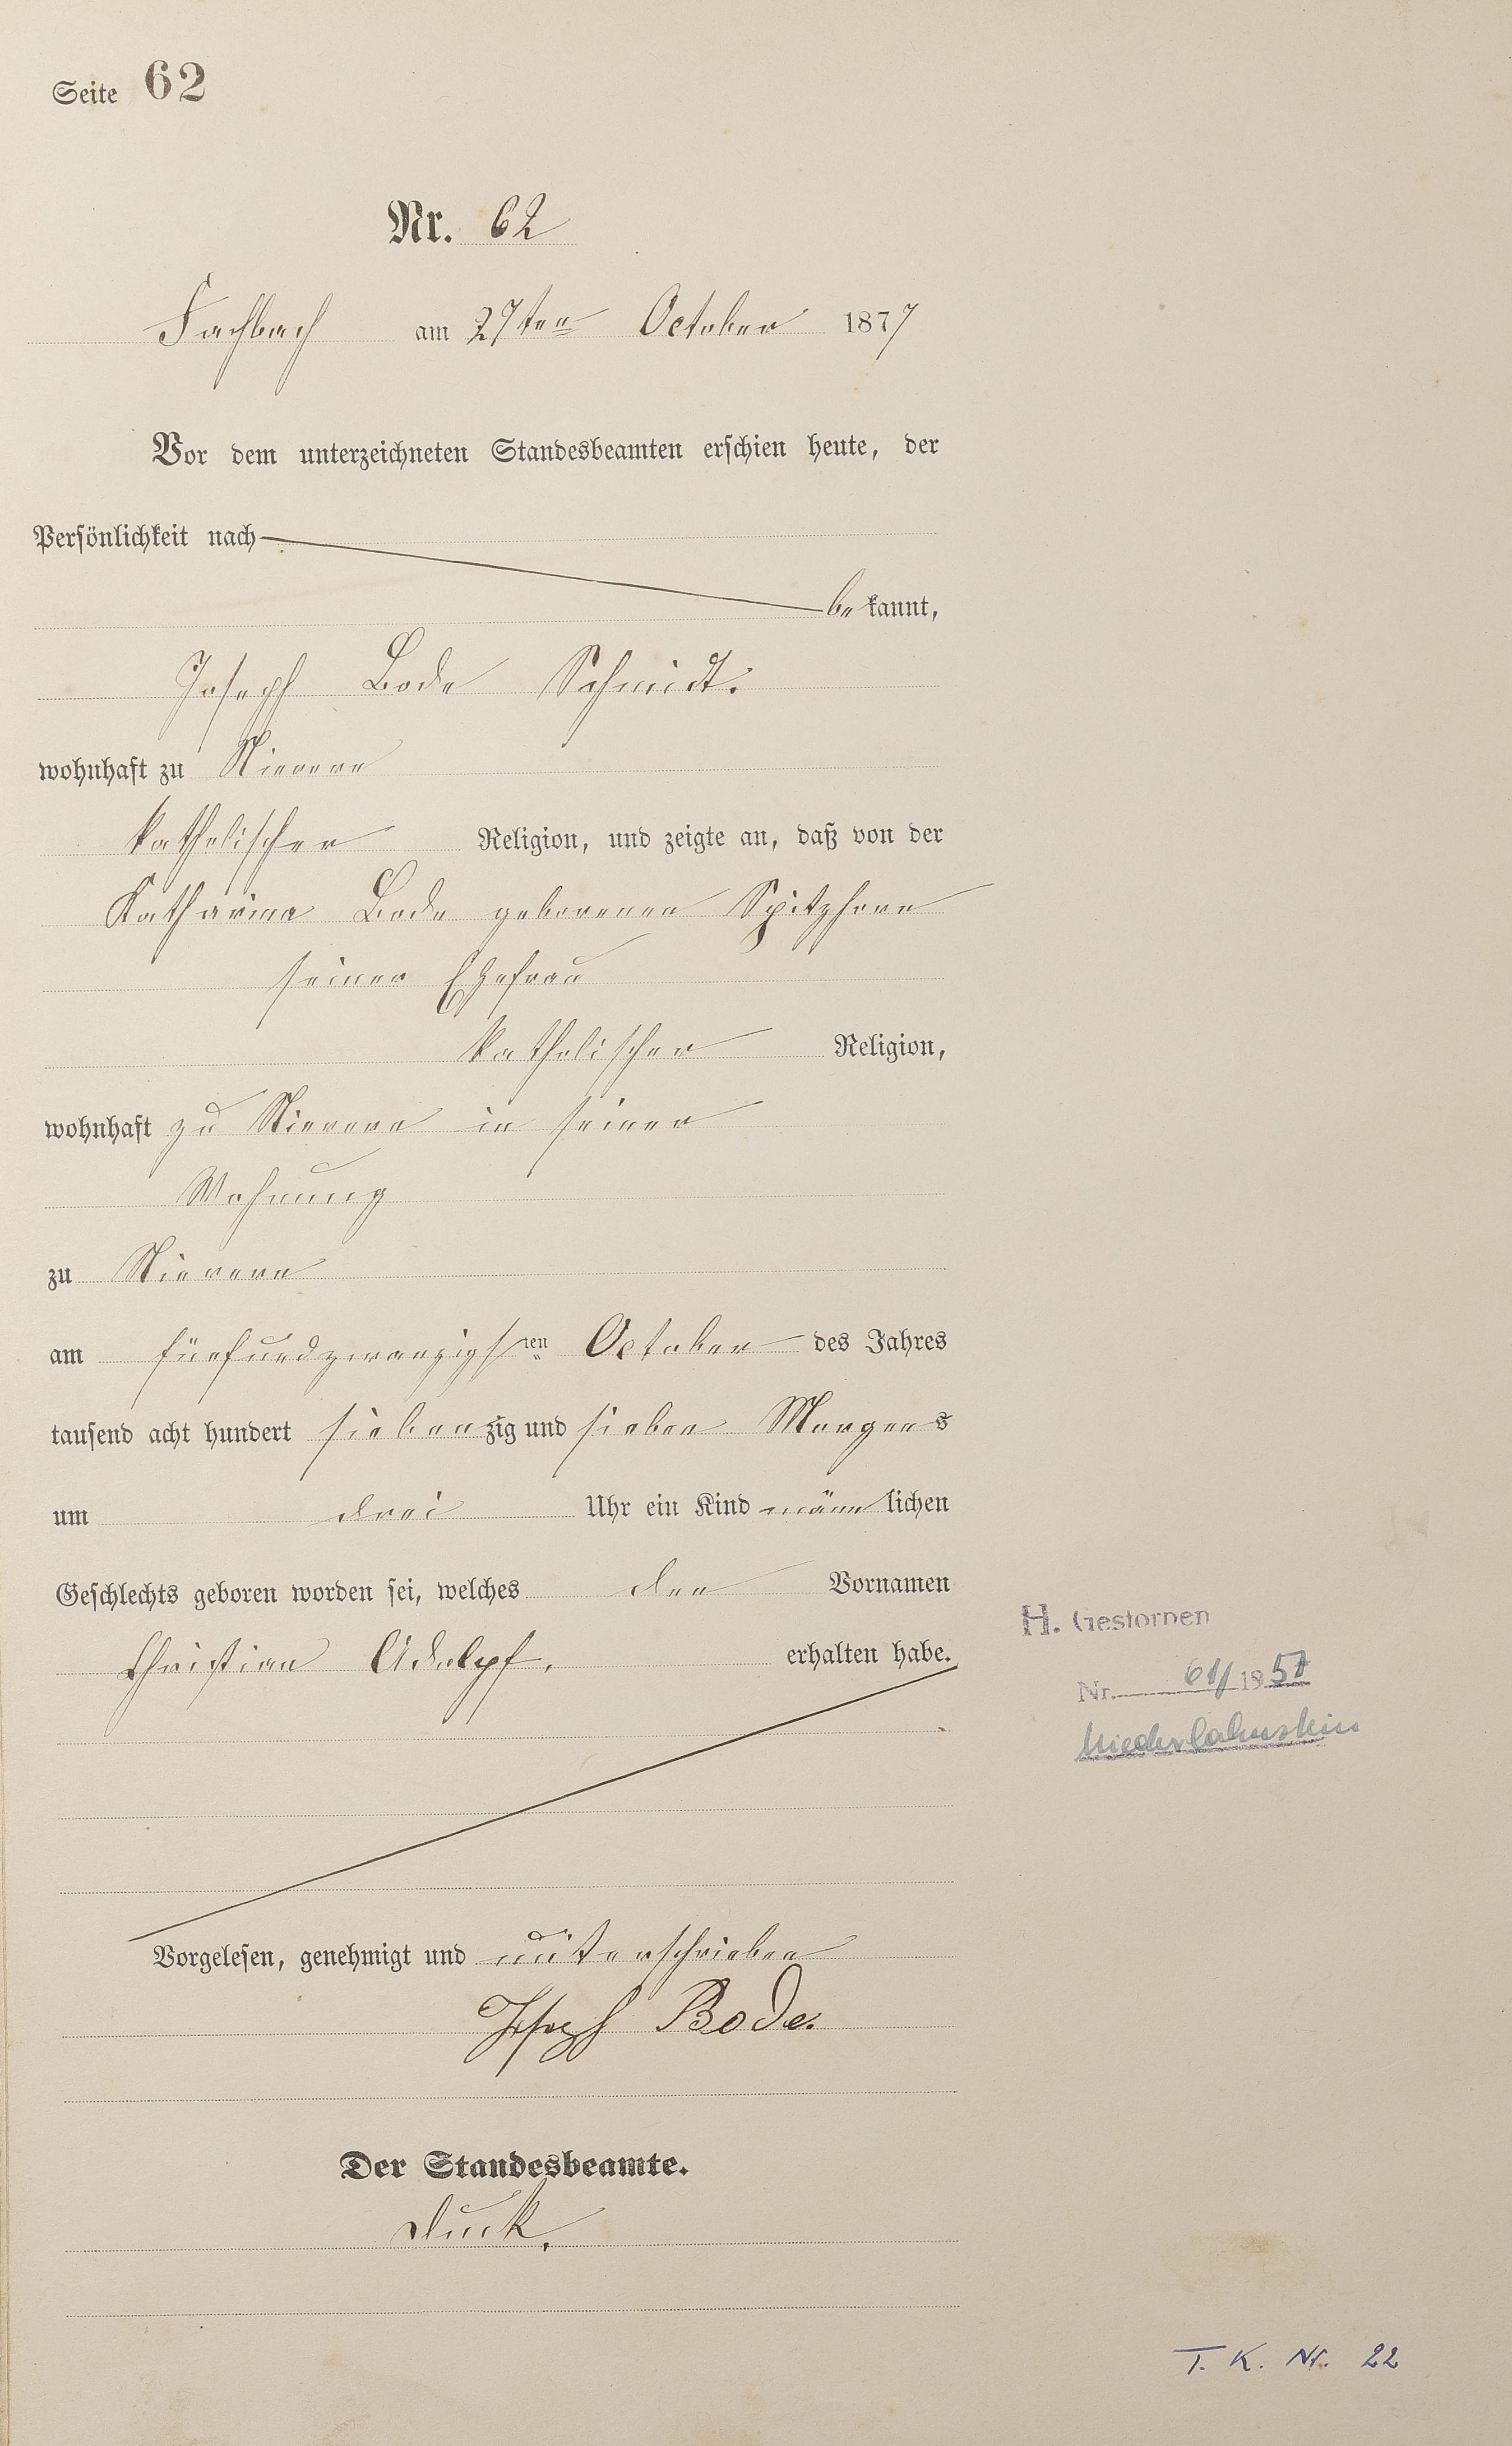 Seite 62
Nr. 62
Fachbach am 27ten October 1877
Vor dem unterzeichneten Standesbeamten erschien heute, der
Persönlichkeit nach
bekannt,
Joseph Bode Schmidt.
wohnhaft zu Nievern
katholischer Religion, und zeigte an, daß von der
Katharina Bode geborenen Spitzhorn
seiner Ehefrau
katholischer Religion,
wohnhaft zu Nievern in seiner
Wohnung
zu Nievern
am fünfundzwanzigsten October des Jahres
tausend acht hundert siebenzig und sieben Morgens
um drei Uhr ein Kind männlichen
Geschlechts geboren worden sei, welches den Vornamen
Christian Adolph. erhalten habe.
H. Gestorben
Nr. 61/1957
Niederlahnstein
Vorgelesen, genehmigt und unterschrieben
Joseph Bode.
Der Standesbeamte.
Duck.
T. K. Nr. 22